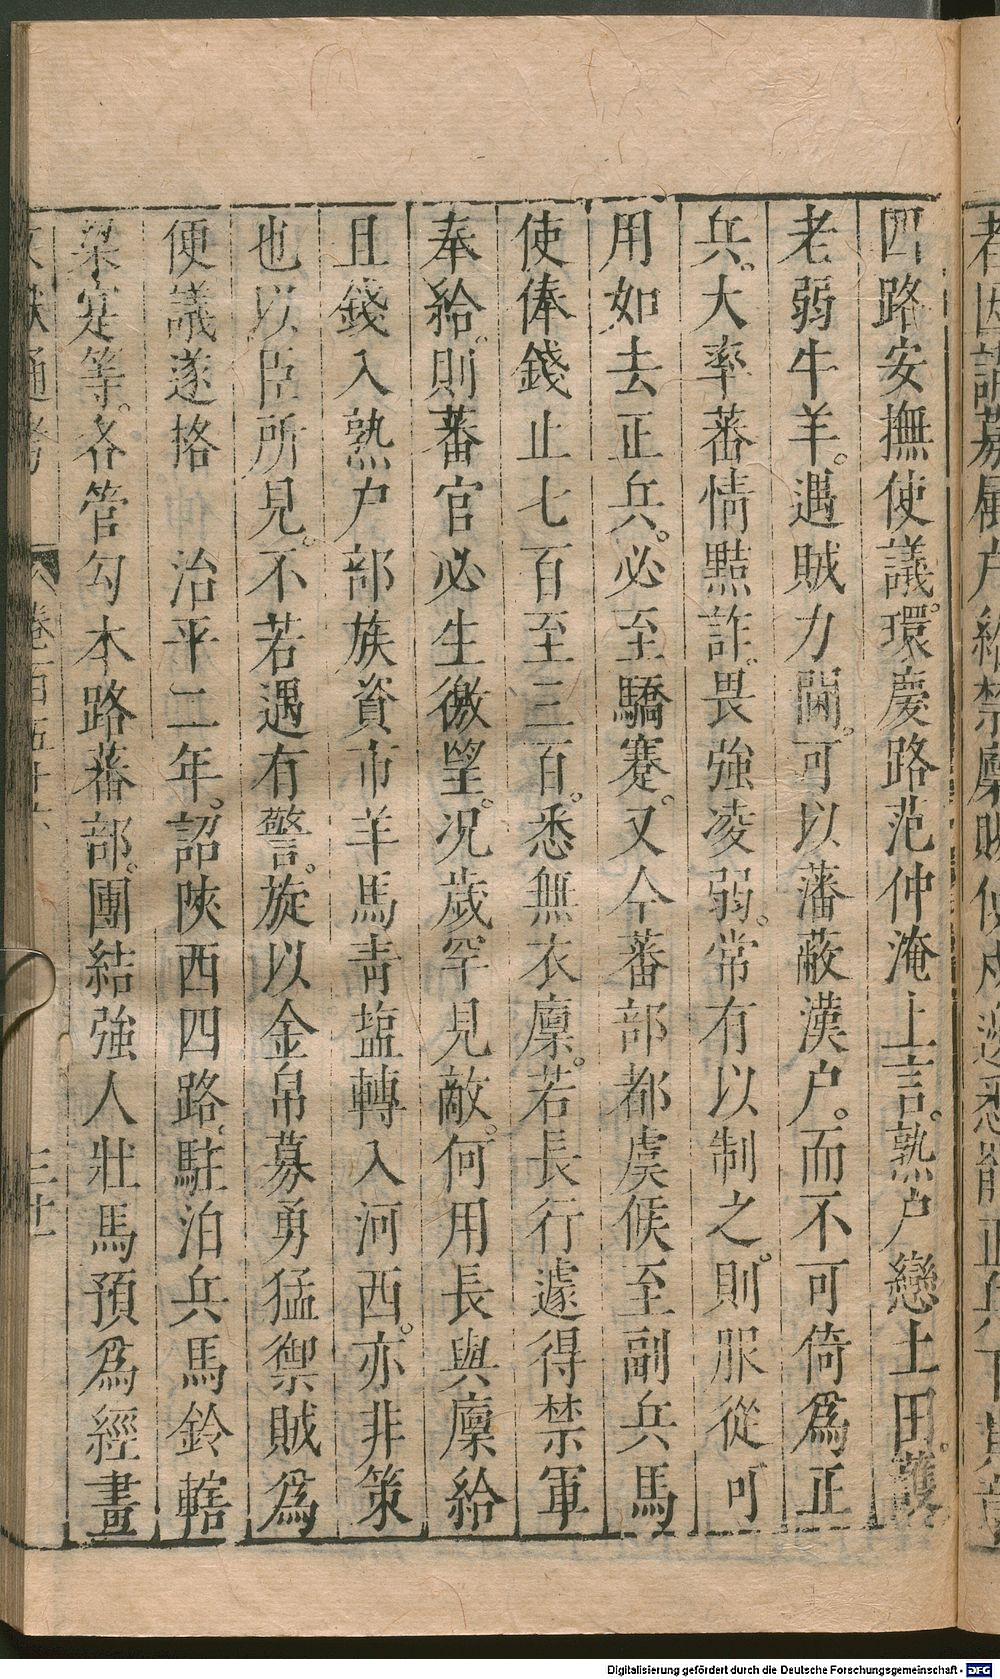 四路安撫使議。環慶路范仲淹上言。熟户戀土田。護
老弱牛羊。遇賊力鬭。可以藩蔽漢户。而不可倚爲正
兵。大率蕃情黠詐。畏強凌弱。常有以制之。則服從可
用如去正兵。必至驕蹇。又今蕃部都虞候至副兵馬
使俸錢止七百至三百。悉無衣廩。若長行遽得禁軍
奉給。則蕃官必生徼望。况歲罕見敵。何用長與廩給
且錢入熟户部族資市羊馬青塩轉入河西。亦非策
也以臣所見。不若遇有警。旋以金帛募勇猛禦賊爲
便議遂挌 治平二年。詔陝西四路。駐泊兵馬鈐轄
梁寔等。各管勾本路蕃部。團結強人壯馬預爲經畫
文獻通考 卷一百五十六 三十
Digitalisierung gefördert durch die Deutsche Forschungsgemeinschaft - DFG